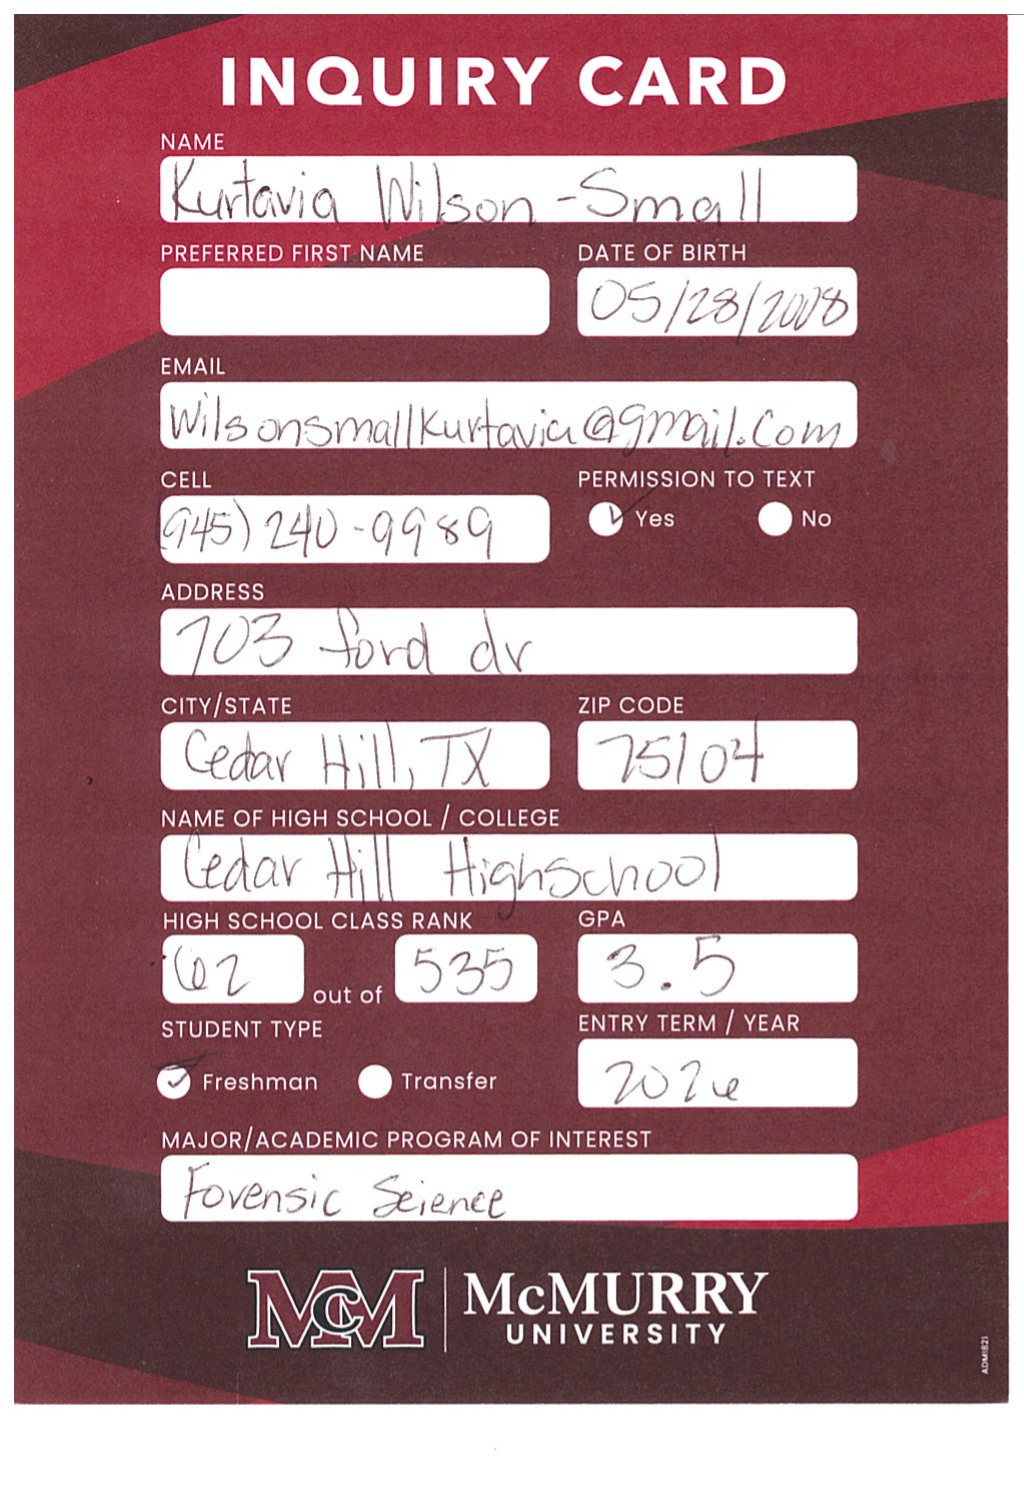 INQUIRY CARD
NAME
Kurtavia Wilson-Small
PREFERRED FIRST NAME DATE OF BIRTH
05/28/2008
EMAIL
Wilsonsmallkurtavia@gmail.com
CELL PERMISSION TO TEXT
(945) 240-9989 Yes No
ADDRESS
703 ford dr
CITY/STATE ZIP CODE
Cedar Hill, TX 75104
NAME OF HIGH SCHOOL / COLLEGE
Cedar Hill Highschool
HIGH SCHOOL CLASS RANK GPA
62 out of 535 3.5
STUDENT TYPE ENTRY TERM / YEAR
Freshman Transfer 2026
MAJOR/ACADEMIC PROGRAM OF INTEREST
Forensic Science
McM McMURRY
UNIVERSITY
ADM1821